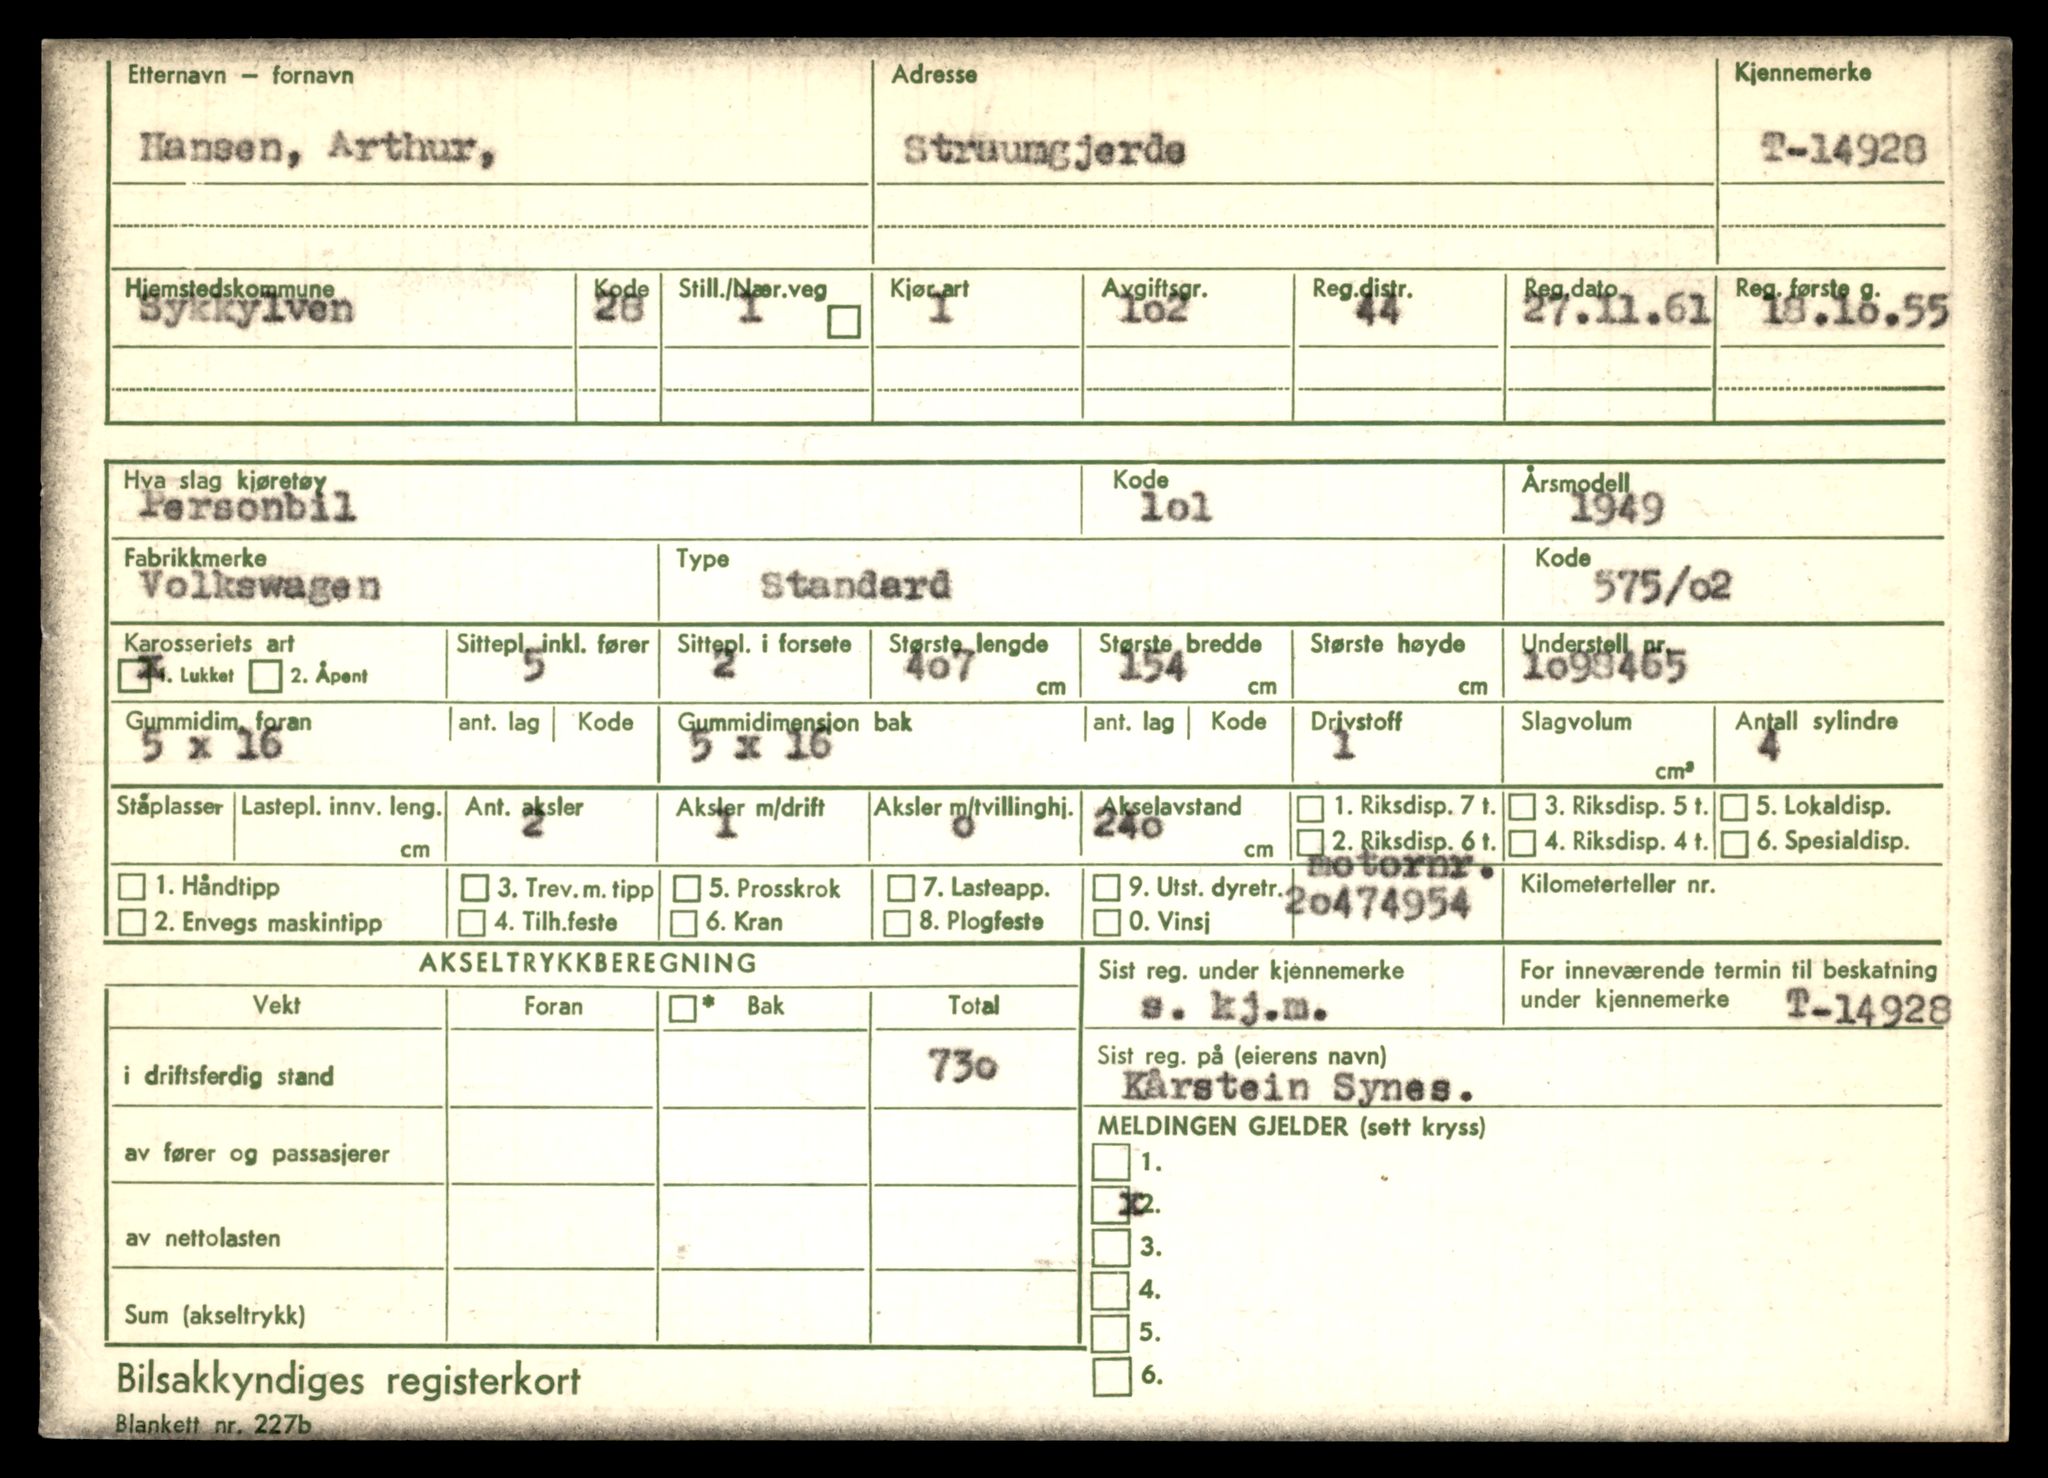 Etternavn — fornavn Adresse Kjennemerke
Hansen, Arthur, Struumgjerde T-14928
Hjemstedskommune Kode Still./Nær.veg Kjør.art Avgiftsgr. Reg.distr. Reg.dato Reg. første g.
Sykkylven 28 1 1 1o2 44 27.11.61 18.1o.55
Hva slag kjøretøy Kode Årsmodell
Personbil 1o1 1949
Fabrikkmerke Type Kode
Volkswagen Standard 575/o2
Karosseriets art Sittepl. inkl. fører Sittepl. i forsete Største lengde Største bredde Største høyde Understell nr.
x 1. Lukket 2. Åpent 5 2 4o7 cm 154 cm cm 1o98465
Gummidim. foran ant. lag Kode Gummidimensjon bak ant. lag Kode Drivstoff Slagvolum Antall sylindre
5 x 16 5 x 16 1 cm³ 4
Ståplasser Lastepl. innv. leng. Ant. aksler Aksler m/drift Aksler m/tvillinghj. Akselavstand 1. Riksdisp. 7 t. 3. Riksdisp. 5 t. 5. Lokaldisp.
cm 2 1 o 24o cm 2. Riksdisp. 6 t. 4. Riksdisp. 4 t. 6. Spesialdisp.
motornr.
1. Håndtipp 3. Trev. m. tipp 5. Prosskrok 7. Lasteapp. 9. Utst. dyretr. 2o474954 Kilometerteller nr.
2. Envegs maskintipp 4. Tilh.feste 6. Kran 8. Plogfeste 0. Vinsj
AKSELTRYKKBEREGNING Sist reg. under kjennemerke For inneværende termin til beskatning
Vekt Foran * Bak Total s. kj.m. under kjennemerke T-14928
i driftsferdig stand 73o Sist reg. på (eierens navn)
Kårstein Synes.
MELDINGEN GJELDER (sett kryss)
av fører og passasjerer 1.
x 2.
av nettolasten 3.
4.
Sum (akseltrykk) 5.
6.
Bilsakkyndiges registerkort
Blankett nr. 227b